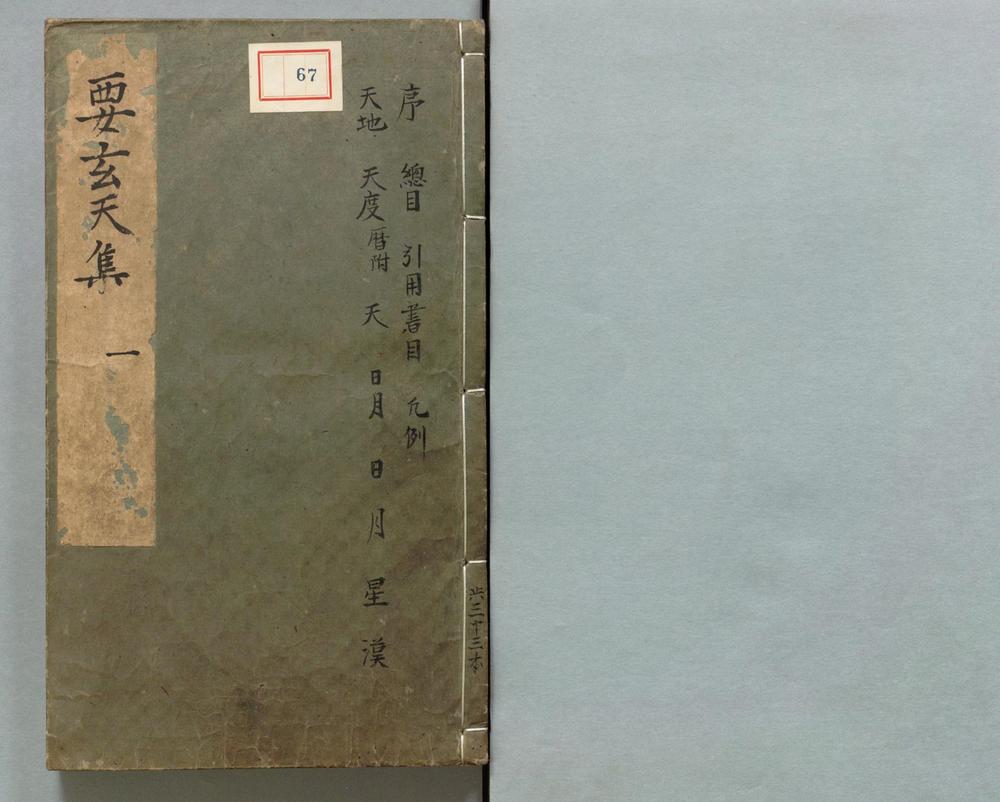 共三十三本
序 總目 引用書目 凡例
天地 天度曆附 天 日月 日 月 星 漢
67
要玄天集 一